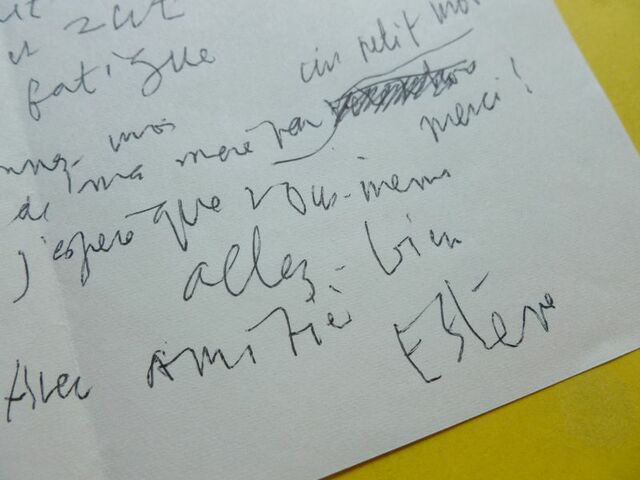 est
fatigué
un petit mot
de ma mère par merci !
j'espère que vous-même
allez-bien
Avec Amitié
Estève